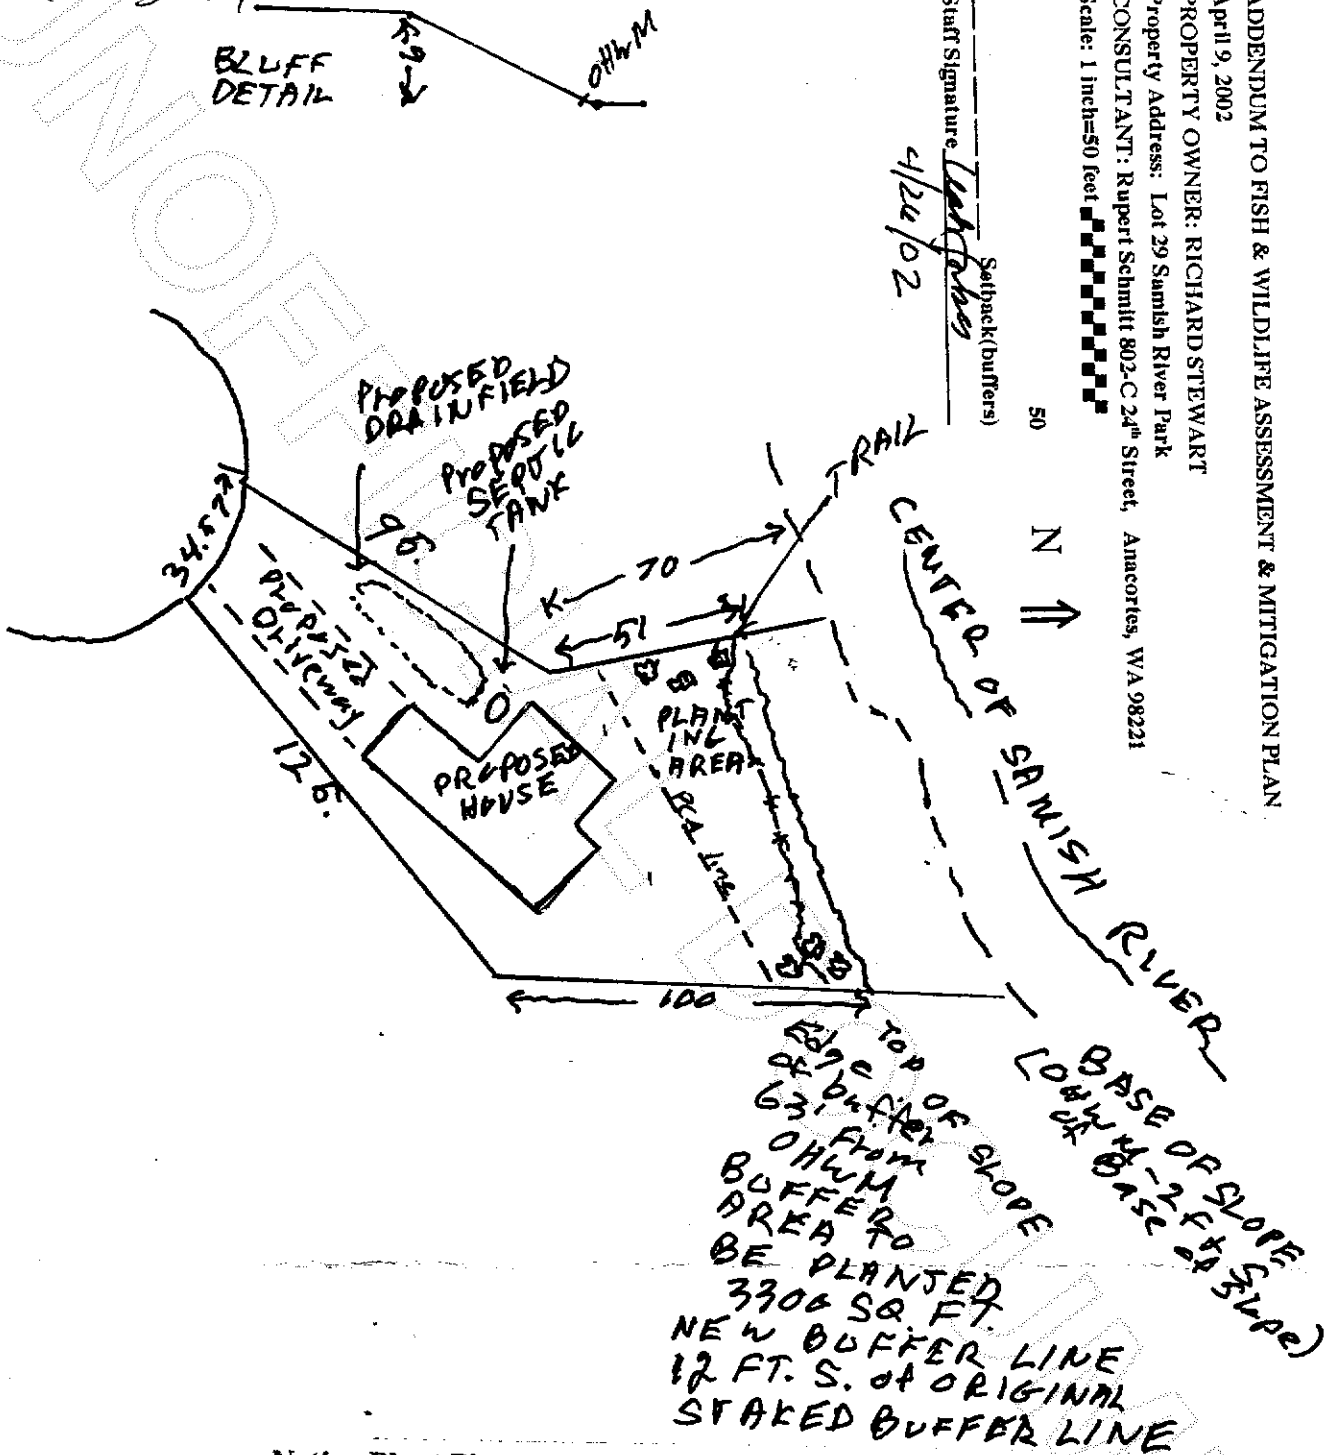 ADDENDUM TO FISH & WILDLIFE ASSESSMENT & MITIGATION PLAN
April 9, 2002
PROPERTY OWNER: RICHARD STEWART
Property Address: Lot 29 Samish River Park
CONSULTANT: Rupert Schmitt 802-C 24th Street, Anacortes, WA 98221
Scale: 1 inch=50 feet
50
N
Setback(buffers)
Staff Signature
4/24/02
BLUFF
DETAIL
9
OHWM
PROPOSED
DRAINFIELD
PROPOSED
SEPTIC
TANK
TRAIL
CENTER OF SAMISH RIVER
34.57
98.
70
51
Proposed
Driveway
126.
PROPOSED
HOUSE
PLANT
ING
AREA
PCA line
100
TOP OF SLOPE
BASE OF SLOPE
(OHWM-2 ft S
of Base of Slope)
Edge
of buffer
63' From
OHWM
BUFFER
AREA TO
BE PLANTED
3306 SQ. FT.
NEW BUFFER LINE
12 FT. S. of ORIGINAL
STAKED BUFFER LINE
UNOFFICIAL DOCUM